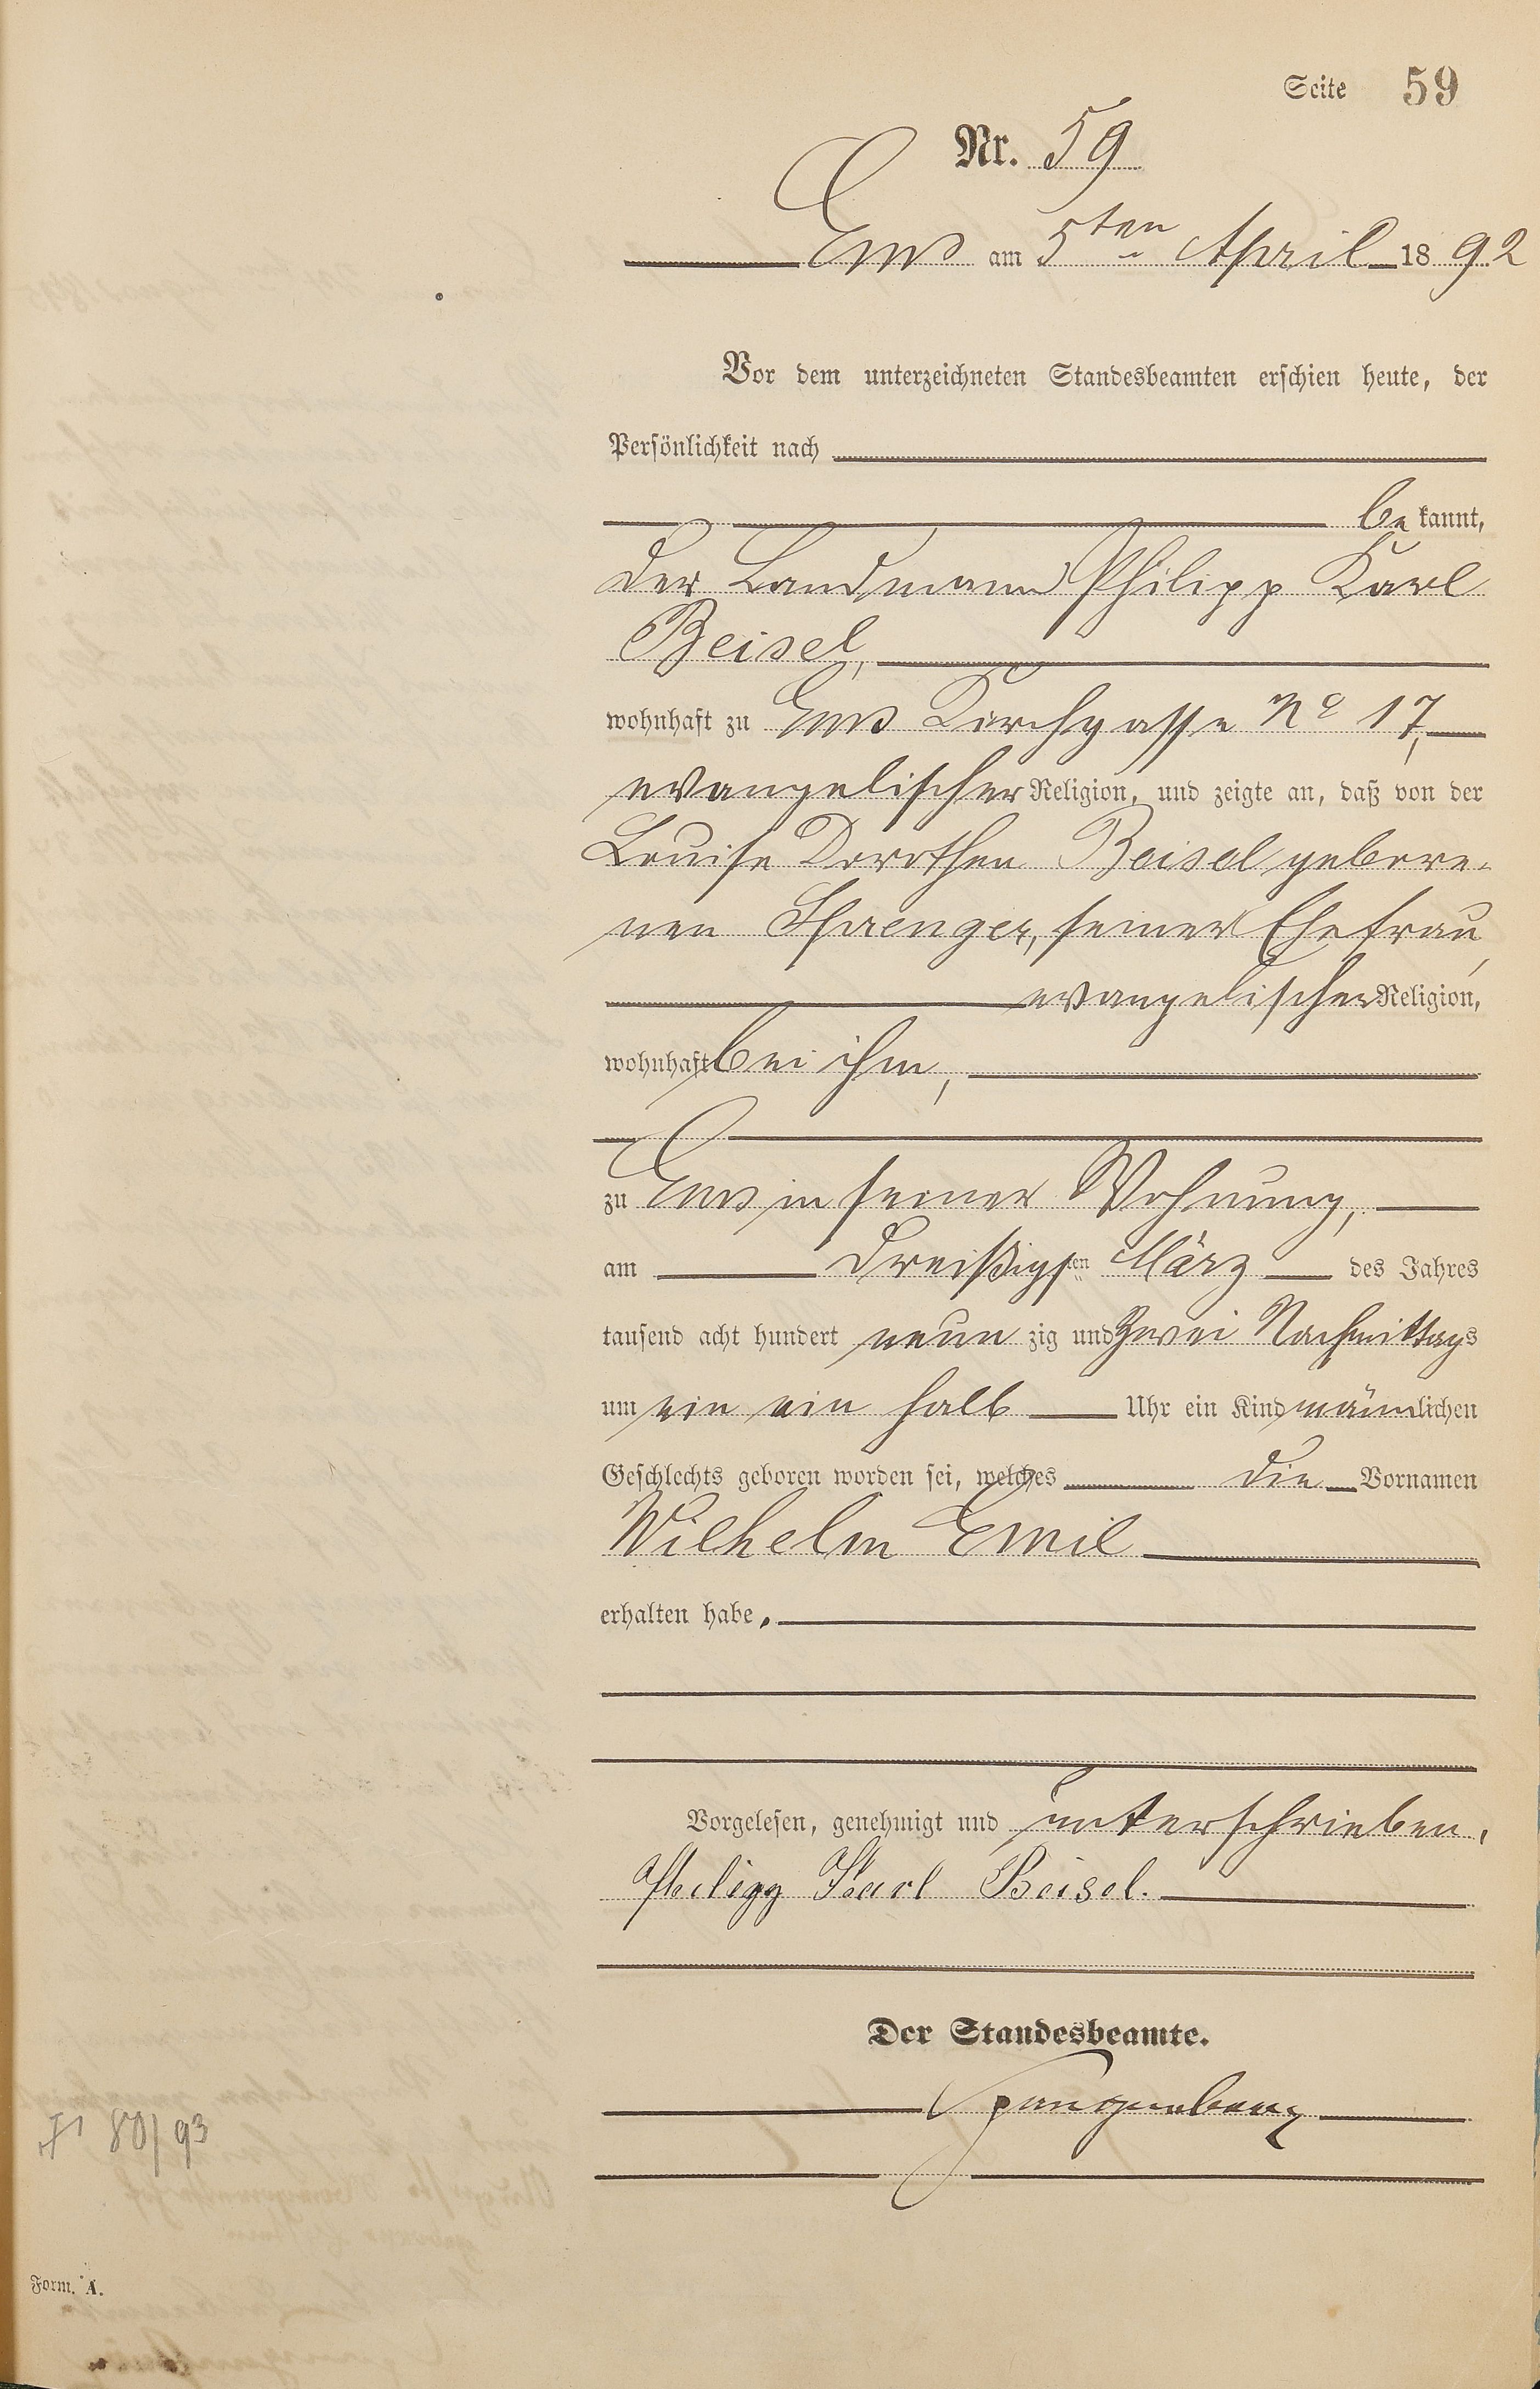 Seite 59
Nr. 59
Ems am 5ten April 1892
Vor dem unterzeichneten Standesbeamten erschien heute, der
Persönlichkeit nach
bekannt,
der Landmann Philipp Karl
Beisel,
wohnhaft zu Ems Kirchgasse No 17,
evangelischer Religion, und zeigte an, daß von der
Louise Dorothea Beisel gebore-
nen Sprenger, seiner Ehefrau,
evangelischer Religion,
wohnhaft bei ihm,
zu Ems in seiner Wohnung,
am dreißigsten März des Jahres
tausend acht hundert neunzig und zwei Nachmittags
um ein ein halb Uhr ein Kind männlichen
Geschlechts geboren worden sei, welches die Vornamen
Wilhelm Emil
erhalten habe.
Vorgelesen, genehmigt und unterschrieben.
Philipp Karl Beisel.
Der Standesbeamte.
Spangenberg
80/93
Form. A.